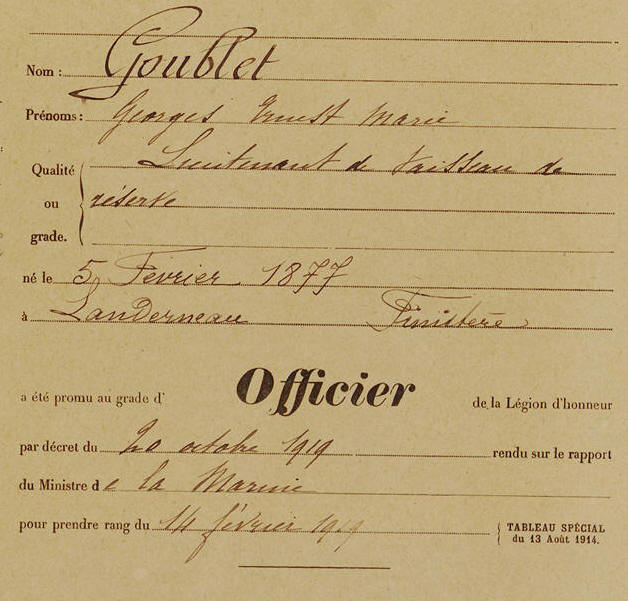 Nom : Goublet
Prénoms : Georges Ernest Marie
Qualité ou grade. Lieutenant de Vaisseau de
réserve
né le 5 Fevrier 1877
à Landerneau Finistère
a été promu au grade d' Officier de la Légion d'honneur
par décret du 20 octobre 1919 rendu sur le rapport
du Ministre de la Marine
pour prendre rang du 14 février 1919 { TABLEAU SPÉCIAL
du 13 Août 1914.